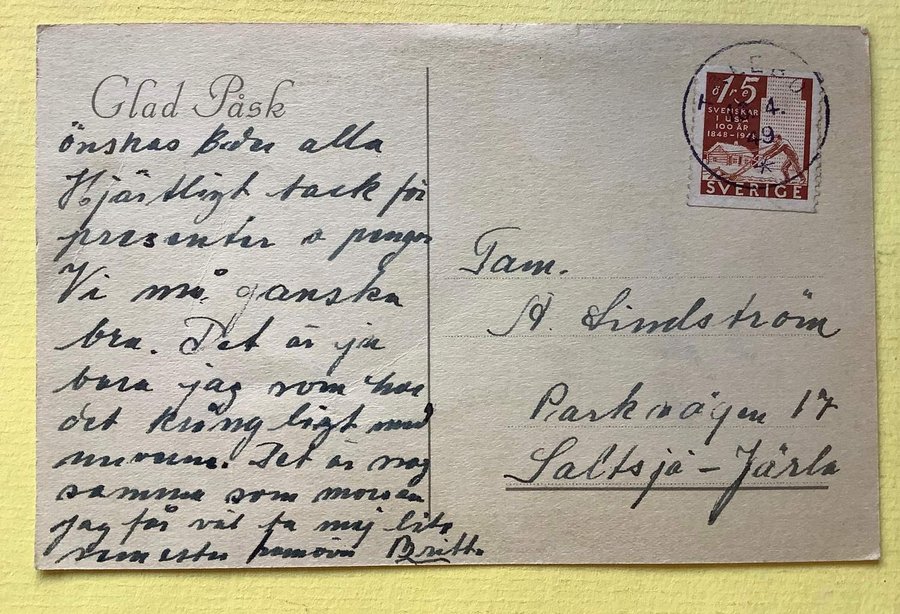 Glad Påsk
önskas Eder alla
Hjärtligt tack för
presenter o pengar
Vi må ganska
bra. Det är ju
bara jag som har
det krångligt med
nerverna. Det är nog
samma som morsan
jag får väl ta mej lite
semester Britta
15
öre
SVENSKAR
I USA
100 ÅR
1848-1948
SVERIGE
4.
49
*
Fam.
A. Lindström
Parkvägen 17
Saltsjö-Järla